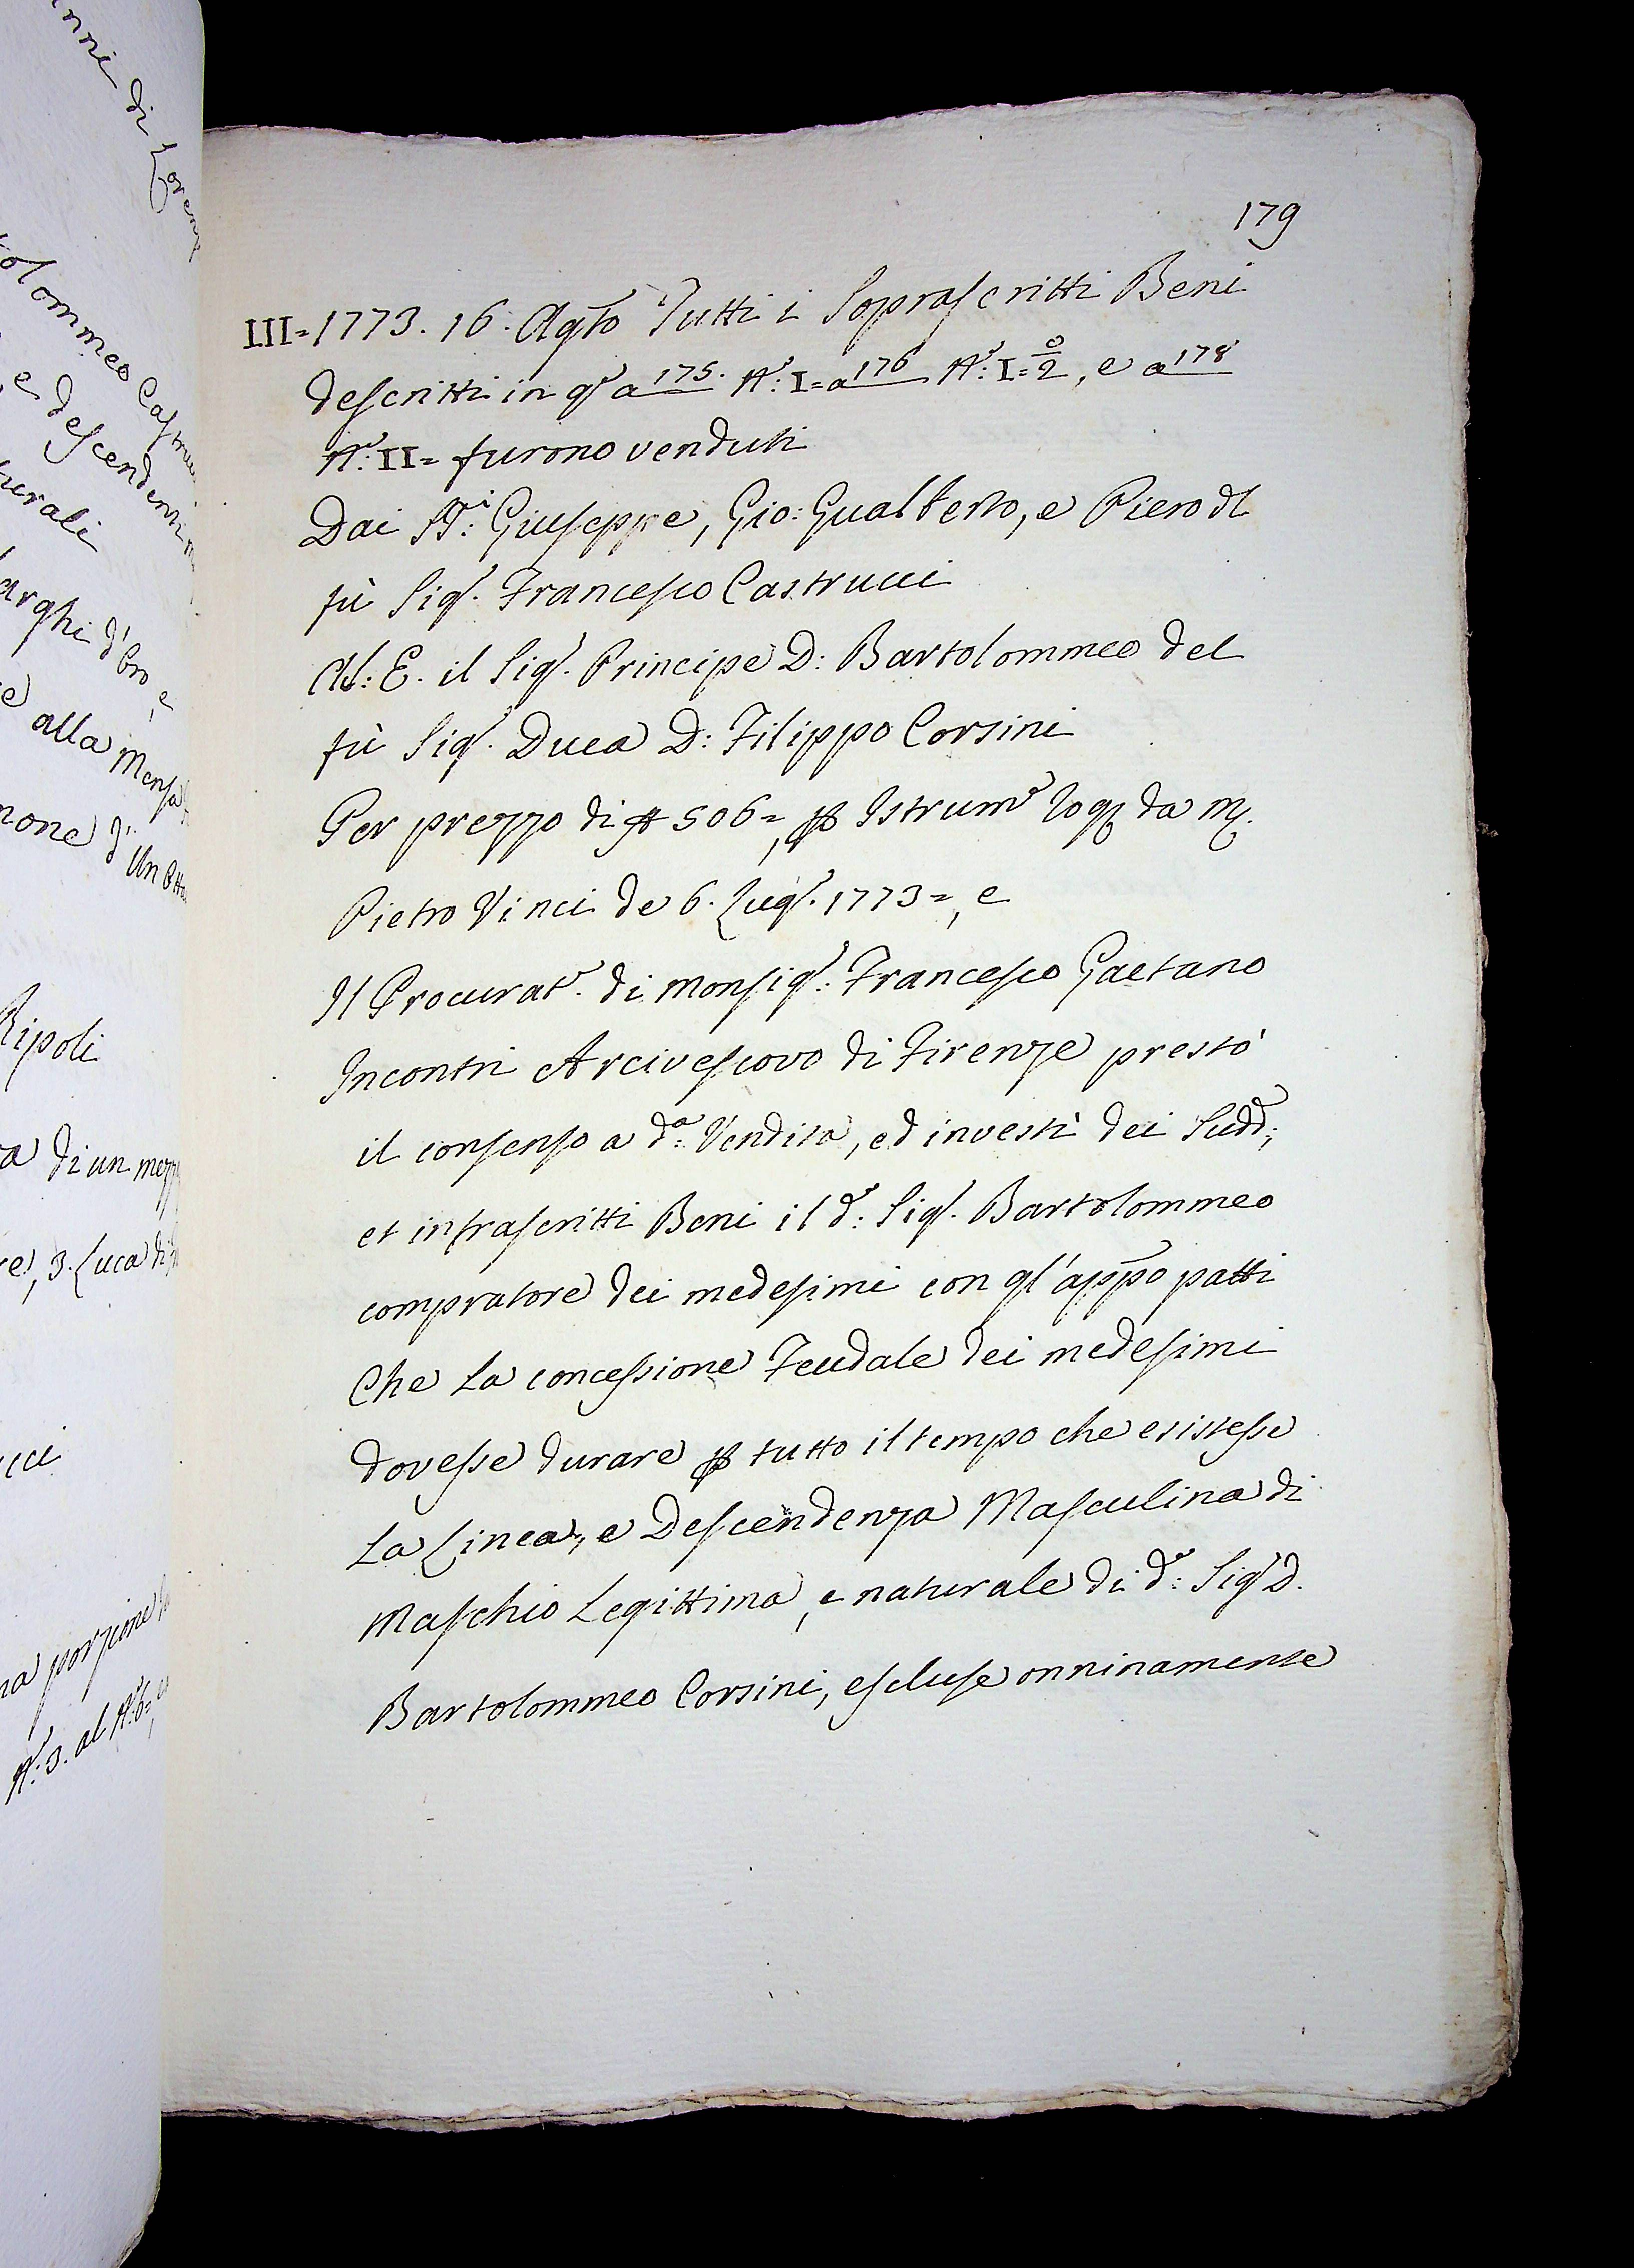 nni di Lorenz
tolommeo Castruc
e descendenti m
turali
larghi d'Oro, e
e alla Mensa
none d'Un Otta
Ripoli
ra di un mezz
re, 3. Luca di
cci
na porzione
Nº: 3. al Nº: 6=,
179
III= 1773. 16. Agto Tutti i Soprascritti Beni
descritti in qº a 175. Nº: I= a 176 Nº: I= 0/2, e a 178
Nº: II= furono venduti
Dai SSi: Giuseppe, Gio: Gualberto, e Piero dl
fù Sigr. Francesco Castrucci
A S: E. il Sigr. Principe D: Bartolommeo del
fù Sigr. Duca D: Filippo Corsini
Per prezzo di 506=, p Istrumº rogº da Mr.
Pietro Vinci de 6. Lugº. 1773=, e
Il Procuratr. di Monsigr: Francesco Gaetano
Incontri Arcivescovo di Firenze prestò
il consenso a da: Vendita, ed investì dei Sudd:,
et infrascritti Beni il dº: Sigr. Bartolommeo
compratore dei medesimi con gl'appo patti
Che La concessione Feudale dei medesimi
dovesse durare p tutto il tempo che esistesse
La Linea, e Descendenza Masculina di
Maschio Legittima, e naturale di dº: Sigr D.
Bartolommeo Corsini, escluse onninamente